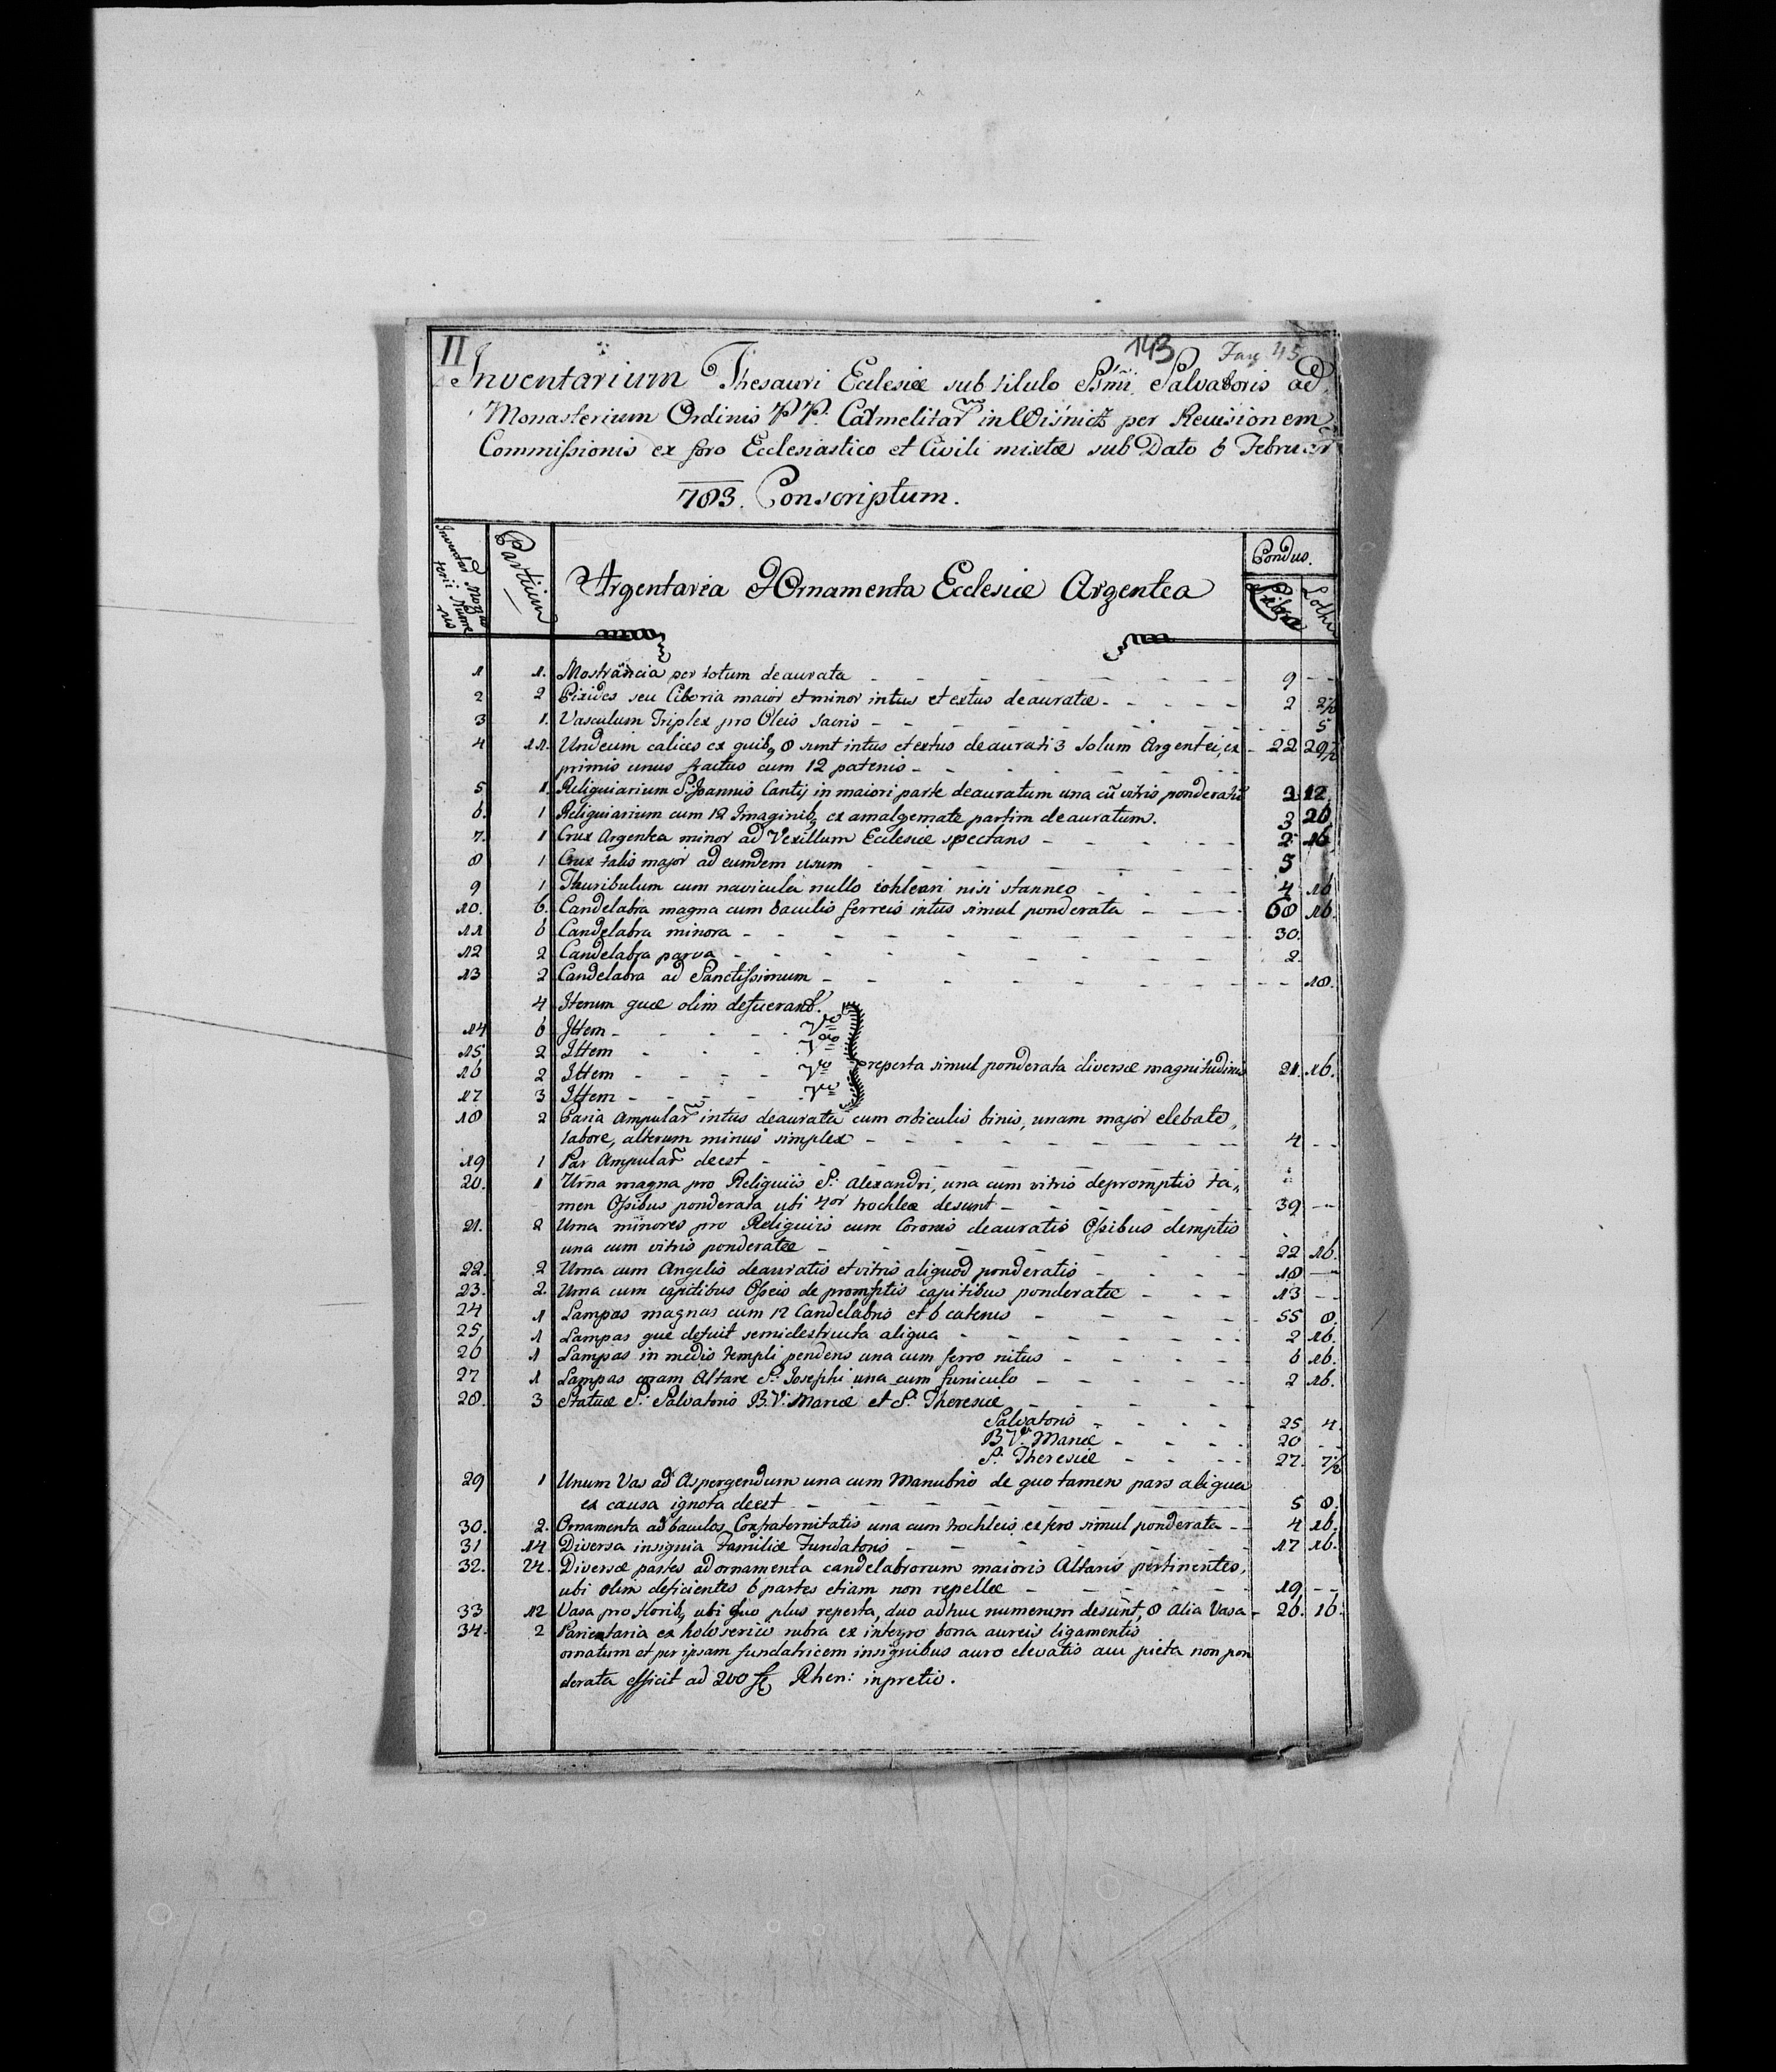 II
143 Fasc. 45
Inventarium Thesauri Ecclesiæ sub titulo Ssmi Salvatoris ad
Monasterium Ordinis PP. Carmelitar in Wisnicz per Reuisionem
Commissionis ex foro Ecclesiastico et Civili mixtæ sub Dato 6 Februar
783. Conscriptum.
Inventar Monas terii Nume rus
Partium
Argentaria & Ornamenta Ecclesiæ Argentea
Pondus.
Libræ Lothe
1 1. Mostrancia per totum deaurata - - - 9 - -
2 2 Pixides seu Ciboria maior et minor intus et extus deauratæ - - - 2 2 1/2
3 1. Vasculum Triplex pro Oleis Sacris - - - 5
4 11. Undecim calices ex quibq 8 sunt intus et extus deaurati 3 Solum Argentei, ex - 22 29 1/2
primis unus fractus cum 12 patenis - - -
5 1. Reliquiarium S. Joannis Cantij in maiori parte deauratum una cũ vitris ponderatũ 2 12
6. 1 Reliquiarium cum 12 Imaginibq ex amalgemate partim deauratum. 3 26
7. 1 Crux Argentea minor ad Vexillum Ecclesiæ spectans - - - 2 16
8 1 Crux talis major ad eundem usum - - - 5
9 1 Thuribulum cum navicula nullo cohleari nisi stanneo - - - 4 16
10. 6. Candelabra magna cum baculis ferreis intus simul ponderata - - - 68 16.
11 6 Candelabra minora - - - 30.
12 2 Candelabra parva - - - 2.
13 2 Candelabra ad Sanctissimum - - - 18.
4 Iterum quæ olim defuerant.
14 6 Ittem - - -
15 2 Ittem - - -
16 2 Ittem - - - reperta simul ponderata diversæ magnitudinis 21. 16.
17 3 Ittem - - -
18 2 Paria Ampular intus deauratæ cum orbiculis binis, unam major elebato,
labore, alterum minus simplex - - - 4 - -
19 1 Par Ampular deest - - -
20. 1 Urna magna pro Reliquiis S. Alexandri, una cum vitris depromptis ta„
men Ossibus ponderata ubi 4or trochlea desunt - - - 39 - -
21. 2 Urna minores pro Reliquiis cum Coronis deauratis Ossibus demptis
una cum vitris ponderatæ - - - 22 16.
22. 2 Urna cum Angelis deauratis et vitris aliquod ponderatis - - - 18 - -
23. 2. Urna cum capitibus Osseis de promptis capitibus ponderatæ - - - 13 - -
24 1 Lampas magnas cum 12 Candelabris et 6 catenis - - - 55 8.
25 1 Lampas que defuit semidestructa aliqua - - - 2 16.
26 1 Lampas in medio templi pendens una cum ferro nitus - - - 6 16.
27 1 Lampas coram Altare S. Josephi una cum funiculo - - - 2 16.
28. 3 Statuæ S. Salvatoris B.V. Mariæ et S. Theresiæ - - -
Salvatoris - - - 25 4.
B.V. Mariæ - - - 20 - -
S. Theresiæ - - - 27. 7 1/2
29 1 Unum Vas ad Aspergendum una cum Manubrio de quo tamen pars aliqua
ex causa ignota deest - - - 5 8.
30. 2. Ornamenta ad baculos Confraternitatis una cum trochleis ex fero simul ponderata - - 4 16.
31 14 Diversa insignia Familiæ Fundatoris - - - 17 16.
32. 24. Diversæ partes ad ornamenta candelabrorum maioris Altaris pertinentes,
ubi olim deficientes 6 partes etiam non repellæ - - - 19 - -
33 12 Vasa pro floribq ubi duo plus reperta, duo adhuc numerum desunt, 8 Alia Vasa - 26. 16.
34. 2 Parientaria ex holoserico rubra ex integro bona aureis ligamentis
ornatum et per ipsam fundatricem insignibus auro elevatis acu picta non pon
derata efficit ad 200 fl Rhen: inpretio.